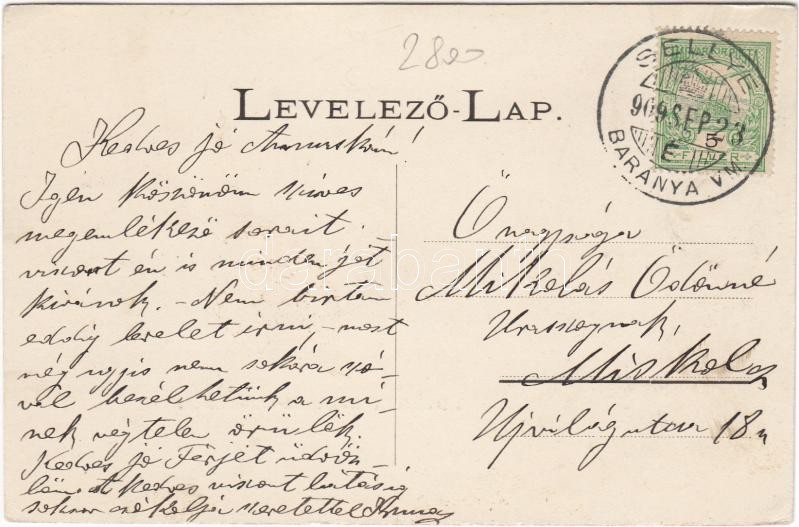 2800
LEVELEZŐ-LAP.
SELLYE
909 SEP 23
É
BARANYA VM
MAGYAR KIR. POSTA
5
FILLÉR
Kedves jó Annuskám!
Igen köszönöm szíves
megemlékező sorait
viszont én is minden jót
kívánok. – Nem birtam
eddig levelet írni, – most
még ugyis nem sokára szó-
val beszélhetünk a mi-
nek végtelen örülök.
Kedves jó Férjét üdvöz-
löm kedves viszont látásig
sokszor csókolja szeretettel
Önagysága
Mikolás Ödönné
Urasszognak,
Miskolcz
Ujvilágutcza 18 sz
databanth